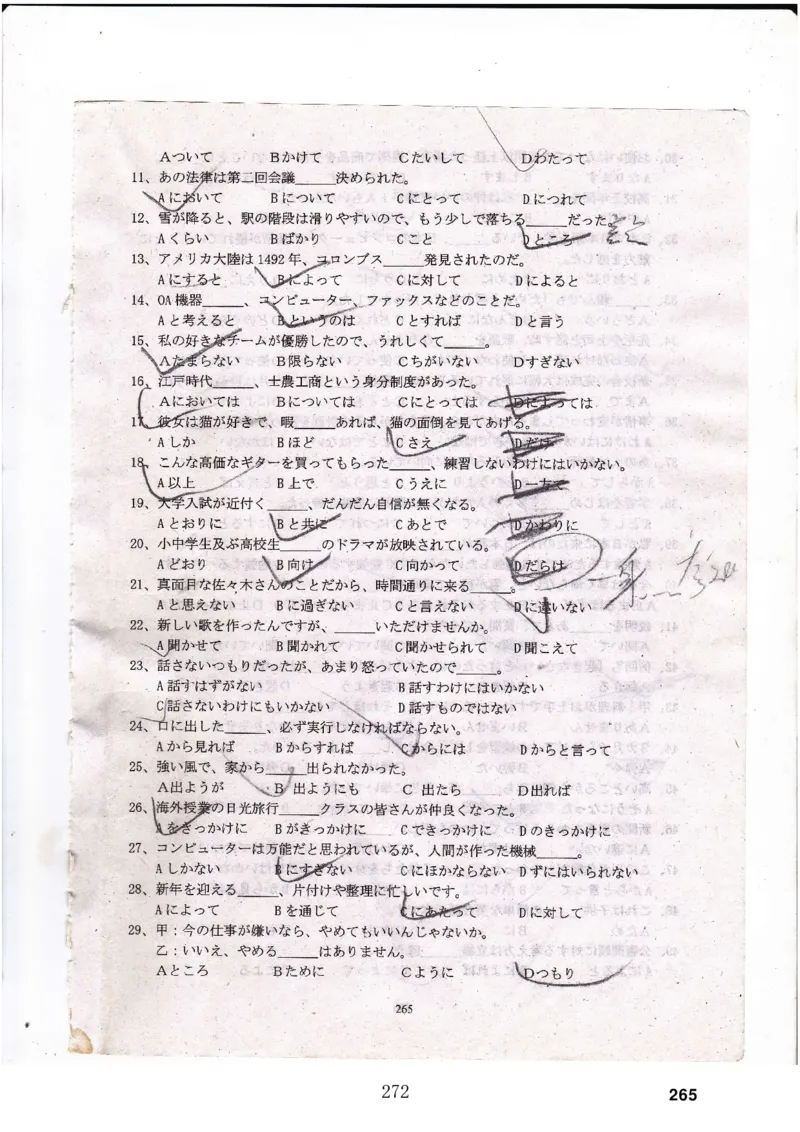 Aついて Bかけて Cたいして Dわたって
11、あの法律は第二回会議_____決められた。
Aにおいて Bについて Cにとって Dにつれて
12、雪が降ると、駅の階段は滑りやすいので、もう少しで落ちる_____だった。
Aくらい Bばかり Cこと Dところ
13、アメリカ大陸は1492年、コロンブス_____発見されたのだ。
Aにすると Bによって Cに対して Dによると
14、OA機器_____、コンピューター、ファックスなどのことだ。
Aと考えると Bというのは Cとすれば Dと言う
15、私の好きなチームが優勝したので、うれしくて_____。
Aたまらない B限らない Cちがいない Dすぎない
16、江戸時代_____、士農工商という身分制度があった。
Aにおいては Bについては Cにとっては Dによっては
17、彼女は猫が好きで、暇_____あれば、猫の面倒を見てあげる。
Aしか Bほど Cさえ Dだけ
18、こんな高価なギターを買ってもらった_____、練習しないわけにはいかない。
A以上 B上で Cうえに D一方で
19、大学入試が近付く_____だんだん自信が無くなる。
Aとおりに Bと共に Cあとで Dかわりに
20、小中学生及ぶ高校生_____のドラマが放映されている。
Aどおり B向け C向かって Dだらけ
21、真面目な佐々木さんのことだから、時間通りに来る_____。
Aと思えない Bに過ぎない Cと言えない Dに違いない
22、新しい歌を作ったんですが、_____いただけませんか。
A聞かせて B聞かれて C聞かせられて D聞こえて
23、話さないつもりだったが、あまり怒っていたので_____。
A話すはずがない B話すわけにはいかない
C話さないわけにもいかない D話すものではない
24、口に出した_____、必ず実行しなければならない。
Aから見れば Bからすれば Cからには Dからと言って
25、強い風で、家から_____出られなかった。
A出ようが B 出ようにも C 出たら D出れば
26、海外授業の日光旅行_____クラスの皆さんが仲良くなった。
Aをきっかけに Bがきっかけに Cできっかけに Dのきっかけに
27、コンピューターは万能だと思われているが、人間が作った機械_____。
Aしかない Bにすぎない Cにほかならない Dずにはいられない
28、新年を迎える_____、片付けや整理に忙しいです。
Aによって Bを通じて Cにあたって Dに対して
29、甲：今の仕事が嫌いなら、やめてもいいんじゃないか。
乙：いいえ、やめる_____はありません。
Aところ Bために Cように Dつもり
265
272
265